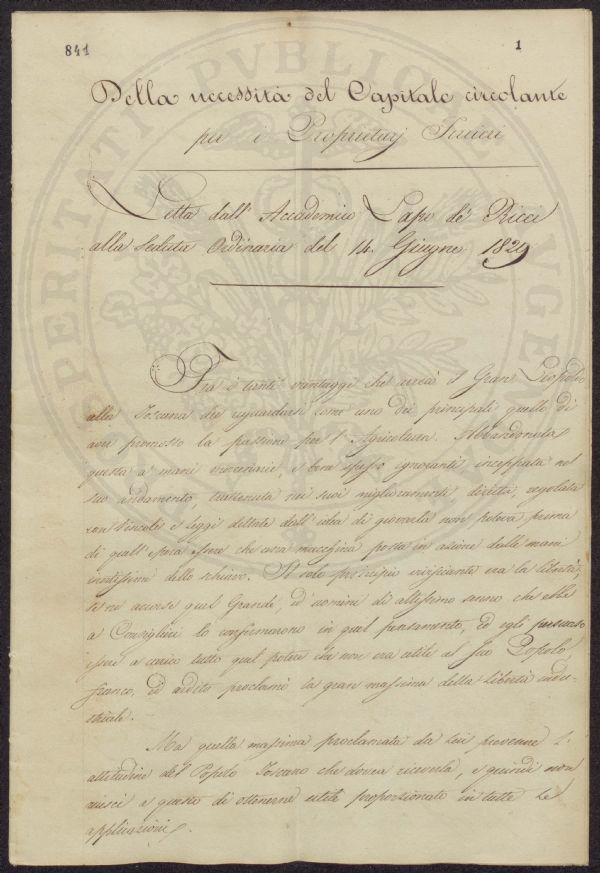 841
1
Della necessità del Capitale circolante
per i Proprietarj
Letta dall' Accademico Lapo de' Ricci
alla Seduta Ordinaria del 14. Giugno 1829
Fra i tanti vantaggi che arrecò il Gran Leopoldo
alla Toscana dee riguardarsi come uno dei principali quello di
aver promosso la passione per l'Agricoltura. Abbandonata
questa a mani mercenarie, e bene spesso ignoranti, inceppata nel
suo andamento, trattenuta nei suoi miglioramenti diretti, regolata
con vincoli e leggi dettate dall'idea di giovarla non poteva prima
di quell'epoca essere che una macchina posta in azione dalle mani
dello schiavo. Il solo principio vivificante era la libertà;
se ne accorse quel Grande, ed uomini di altissimo senno che ebbe
a Consiglieri lo confermarono in quel pensamento, ed egli persuaso
essere a carico tutto quel potere che non era utile al suo Popolo
franco, ed ardito proclamò la gran massima della libertà indu-
striale.
Ma quella massima proclamata da Lui prevenne l'
attitudine del Popolo Toscano che dovea riceverla, e quindi non
riuscì a questo di ottenerne utile proporzionato in tutte le
applicazioni.
PUBLICAE